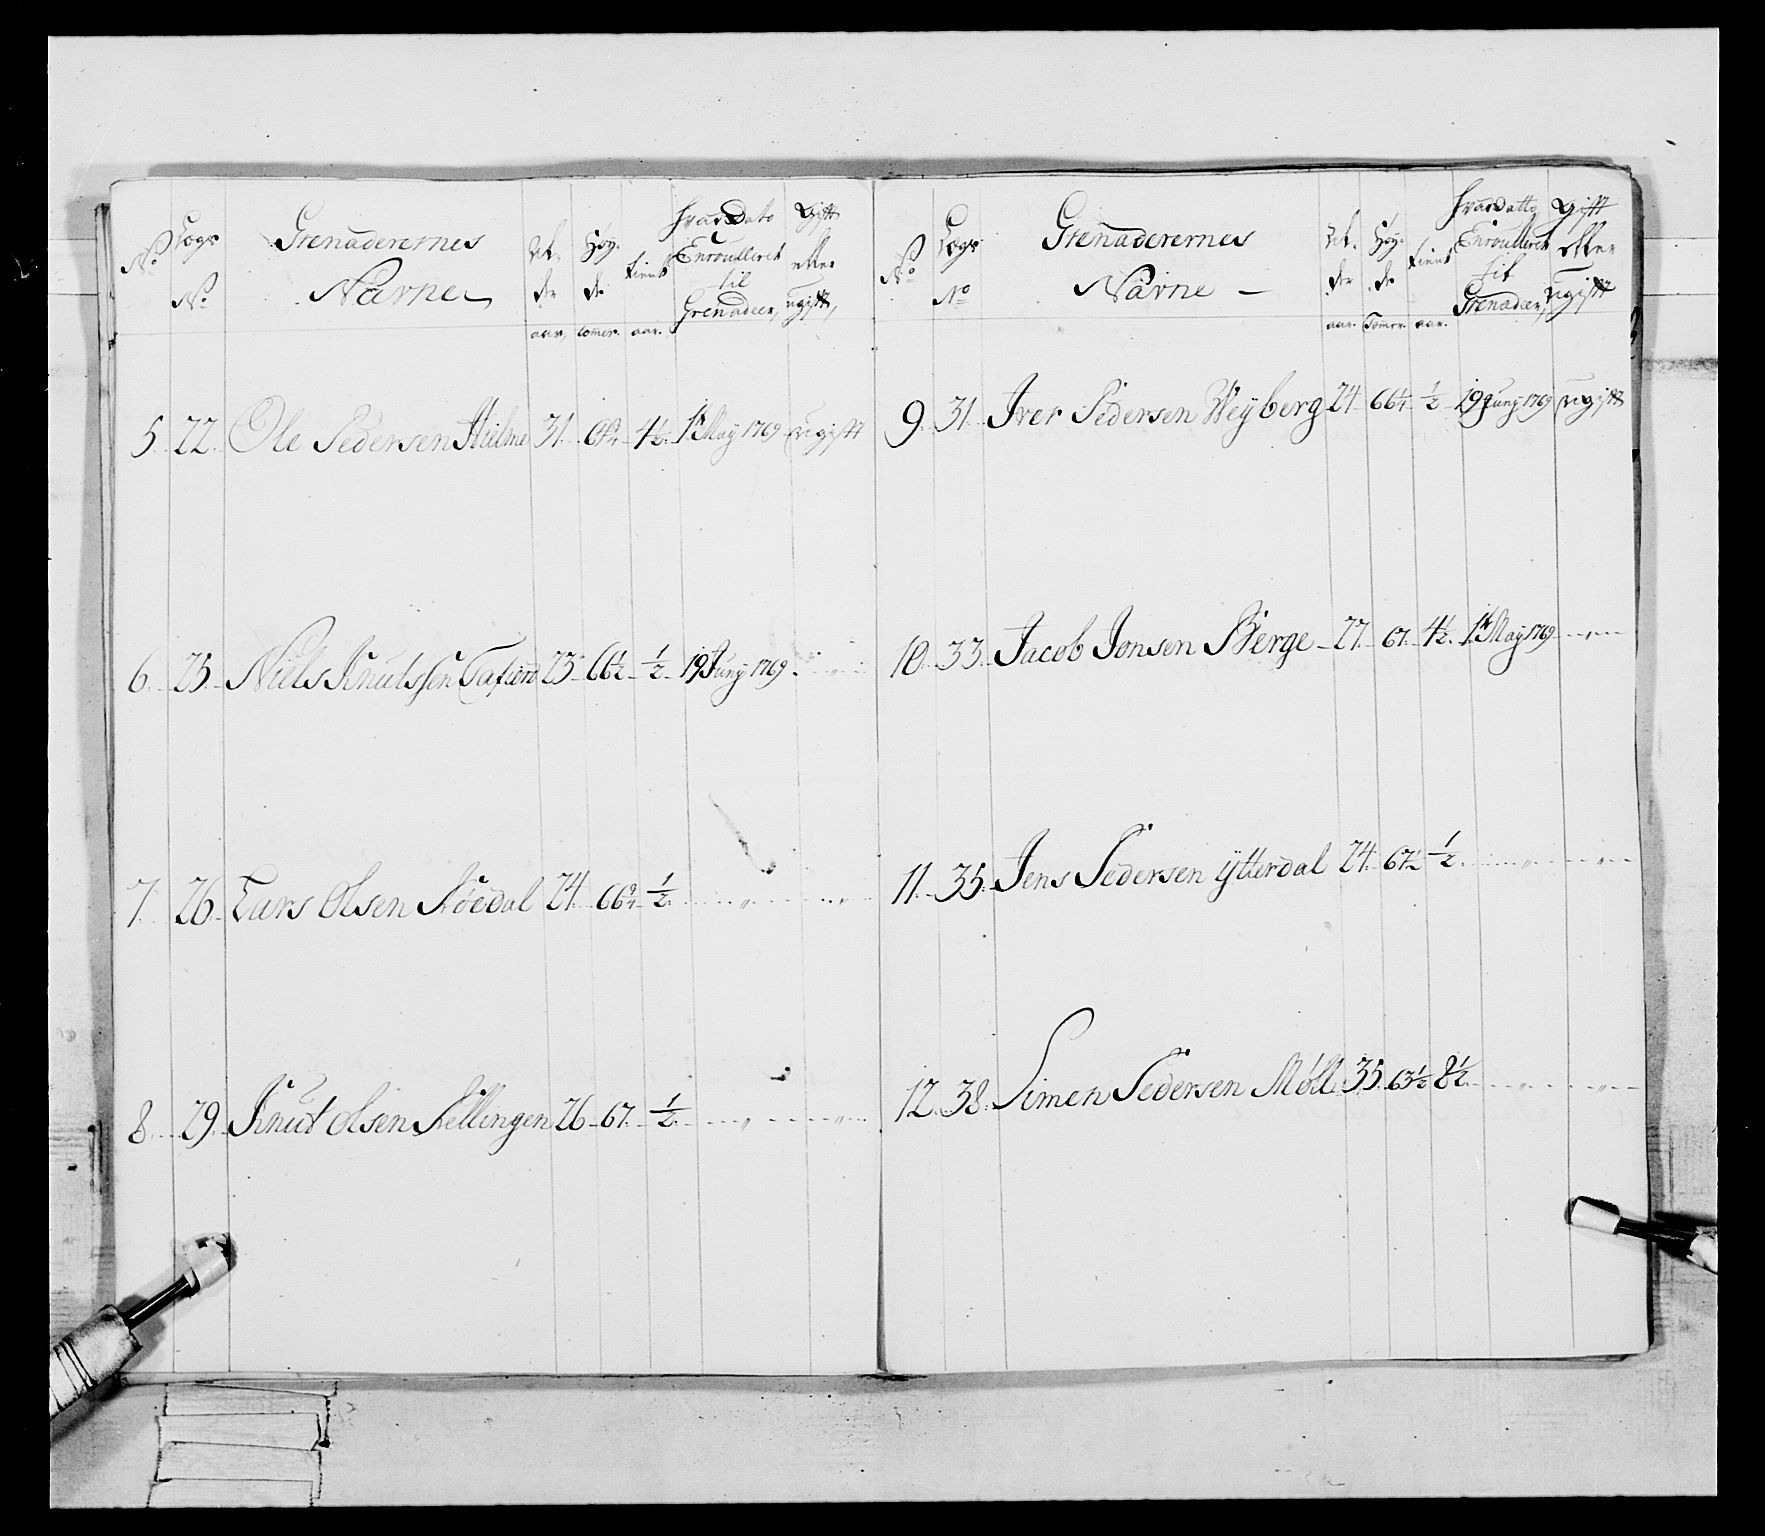 No
Lægs No
Grenaderernes Nafne
Al- der aar
Høy- de tomer
tient aar
hvad Dato Enroulleret til Grenadeer,
Gift eller ugift,
5 22 Ole Pedersen Hielme 31 4½ 1te May 1769 ugift
6 25 Niels Knutssen Tafiord 23 66½ ½ 19 Juny 1769
7 26 Lars Olsen 24 66¾ ½
8 29 Knut Olsen Kellingen 26 67 ½
No
Lægs No
Grenaderernes Nafne
Al- der aar
Høy- de Tomer
tient aar
hvad datto Enroulleret til Grenadeer,
Gift eller ugift
9 31 Iver Pedersen Weyberg 24 66¼ ½ 19 Juny 1769 ugift
10 33 Jacob Jonsen Berge 27 67 4½ 1te May 1769
11 35 Jens Pedersen Ytterdal 24 67½ ½
12 38 Simen Pedersen Møll 35 63½ 8½